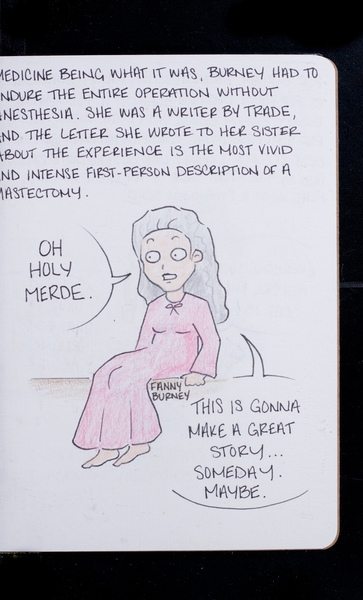 MEDICINE BEING WHAT IT WAS, BURNEY HAD TO
ENDURE THE ENTIRE OPERATION WITHOUT
ANESTHESIA. SHE WAS A WRITER BY TRADE,
AND THE LETTER SHE WROTE TO HER SISTER
ABOUT THE EXPERIENCE IS THE MOST VIVID
AND INTENSE FIRST-PERSON DESCRIPTION OF A
MASTECTOMY.
OH
HOLY
MERDE.
FANNY
BURNEY
THIS IS GONNA
MAKE A GREAT
STORY...
SOMEDAY.
MAYBE.